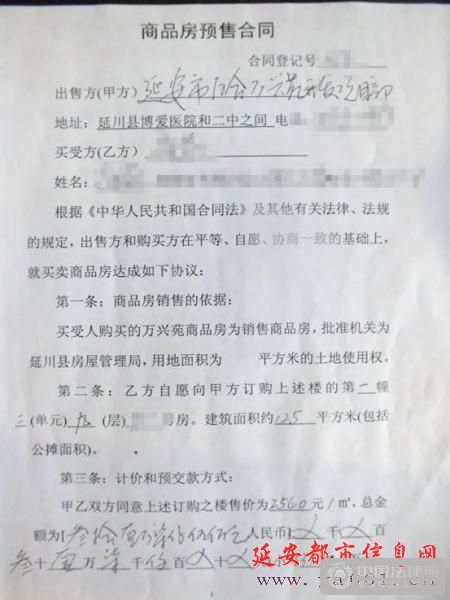 商品房预售合同
合同登记号
出售方(甲方)延安市百合万兴苑开发项目部
地址：延川县博爱医院和二中之间 电
买受方(乙方)
姓名：
根据《中华人民共和国合同法》及其他有关法律、法规
的规定，出售方和购买方在平等、自愿、协商一致的基础上，
就买卖商品房达成如下协议：
第一条：商品房销售的依据：
买受人购买的万兴苑商品房为销售商品房，批准机关为
延川县房屋管理局，用地面积为 平方米的土地使用权。
第二条：乙方自愿向甲方订购上述楼的第一幢
三(单元)九(层) 号房。建筑面积约125平方米(包括
公摊面积)。
第三条：计价和预交款方式：
甲乙双方同意上述订购之楼售价为2560元/㎡，总金
额为 人民币 千 百
叁十 万柒千 百 十
延安都市信息网
中国法律网
1